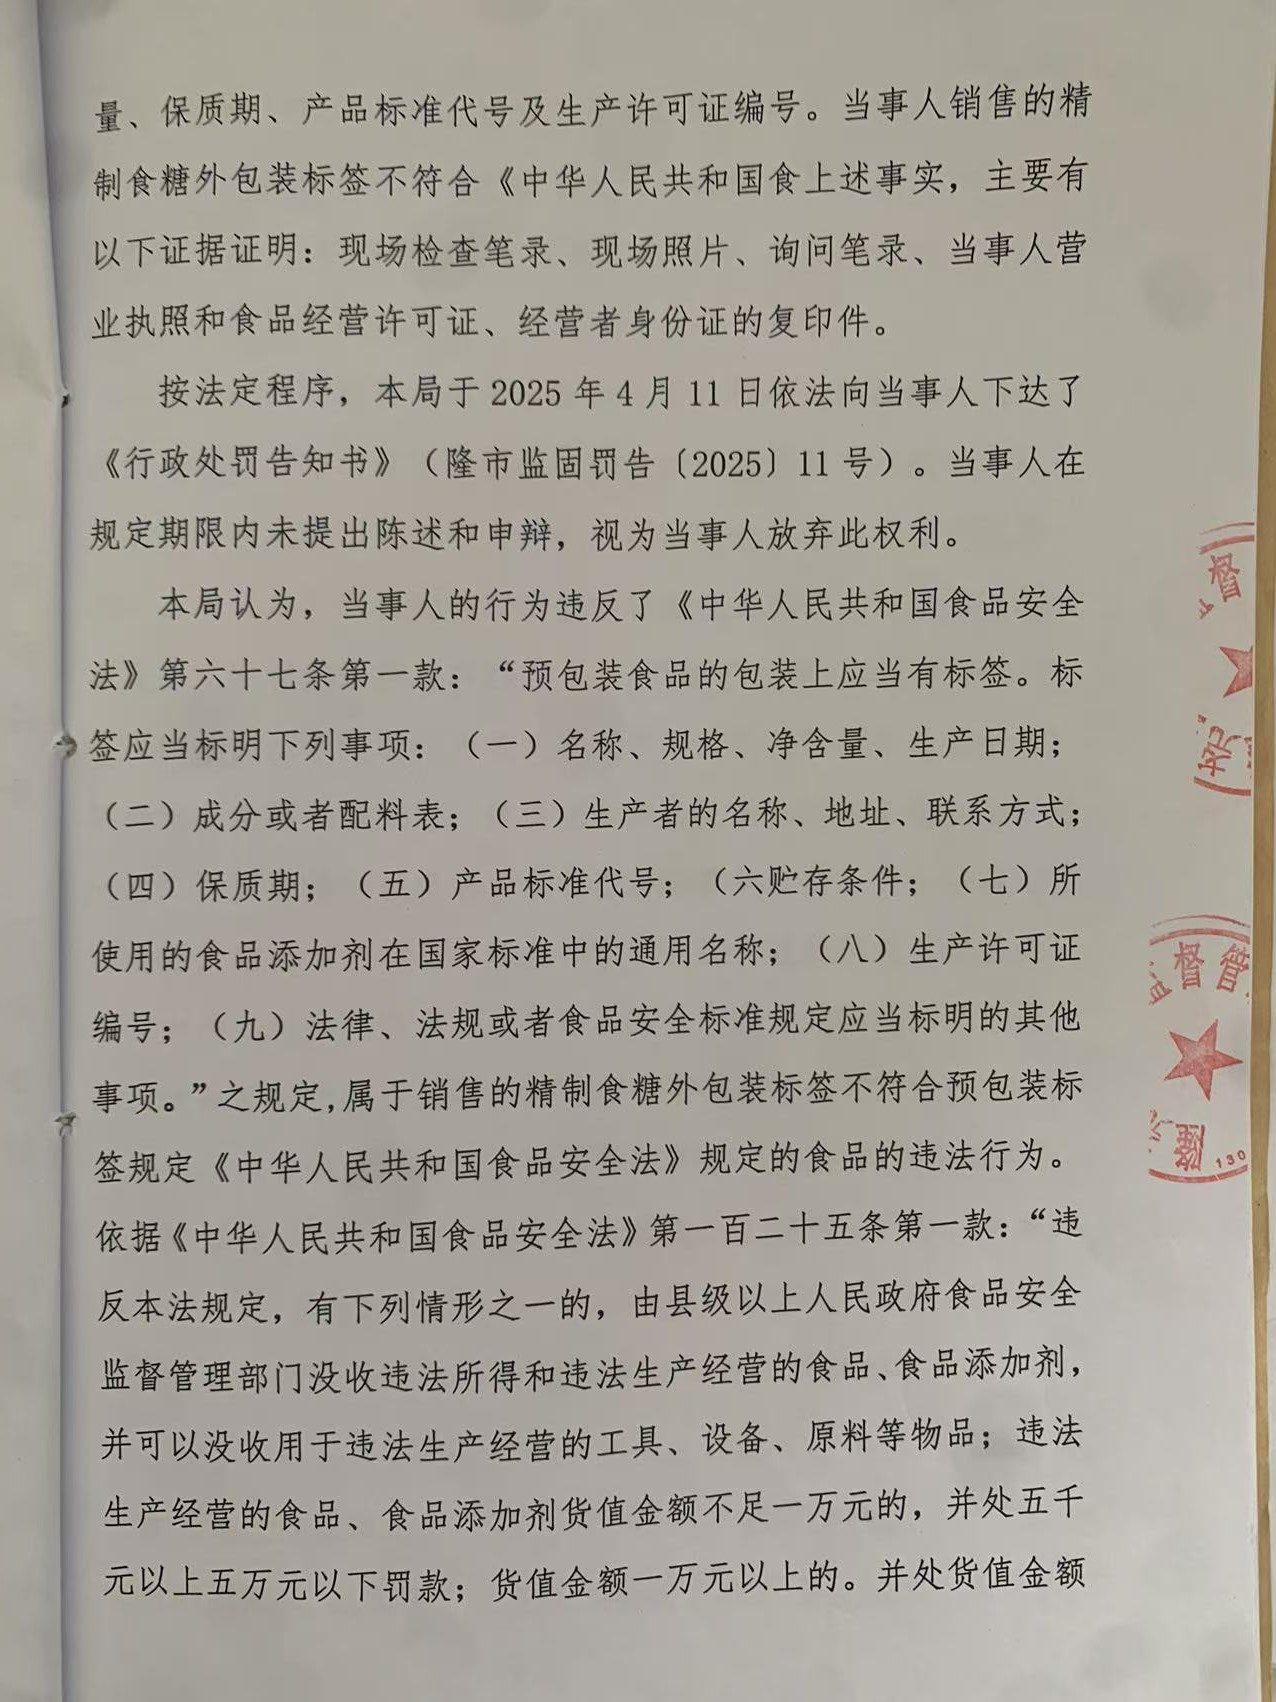 量、保质期、产品标准代号及生产许可证编号。当事人销售的精
制食糖外包装标签不符合《中华人民共和国食上述事实，主要有
以下证据证明：现场检查笔录、现场照片、询问笔录、当事人营
业执照和食品经营许可证、经营者身份证的复印件。
按法定程序，本局于 2025 年 4 月 11 日依法向当事人下达了
《行政处罚告知书》（隆市监固罚告〔2025〕11 号）。当事人在
规定期限内未提出陈述和申辩，视为当事人放弃此权利。
本局认为，当事人的行为违反了《中华人民共和国食品安全
法》第六十七条第一款：“预包装食品的包装上应当有标签。标
签应当标明下列事项：（一）名称、规格、净含量、生产日期；
（二）成分或者配料表；（三）生产者的名称、地址、联系方式；
（四）保质期；（五）产品标准代号；（六贮存条件；（七）所
使用的食品添加剂在国家标准中的通用名称；（八）生产许可证
编号；（九）法律、法规或者食品安全标准规定应当标明的其他
事项。”之规定,属于销售的精制食糖外包装标签不符合预包装标
签规定《中华人民共和国食品安全法》规定的食品的违法行为。
依据《中华人民共和国食品安全法》第一百二十五条第一款：“违
反本法规定，有下列情形之一的，由县级以上人民政府食品安全
监督管理部门没收违法所得和违法生产经营的食品、食品添加剂，
并可以没收用于违法生产经营的工具、设备、原料等物品；违法
生产经营的食品、食品添加剂货值金额不足一万元的，并处五千
元以上五万元以下罚款；货值金额一万元以上的。并处货值金额
督
监督管
隆
130